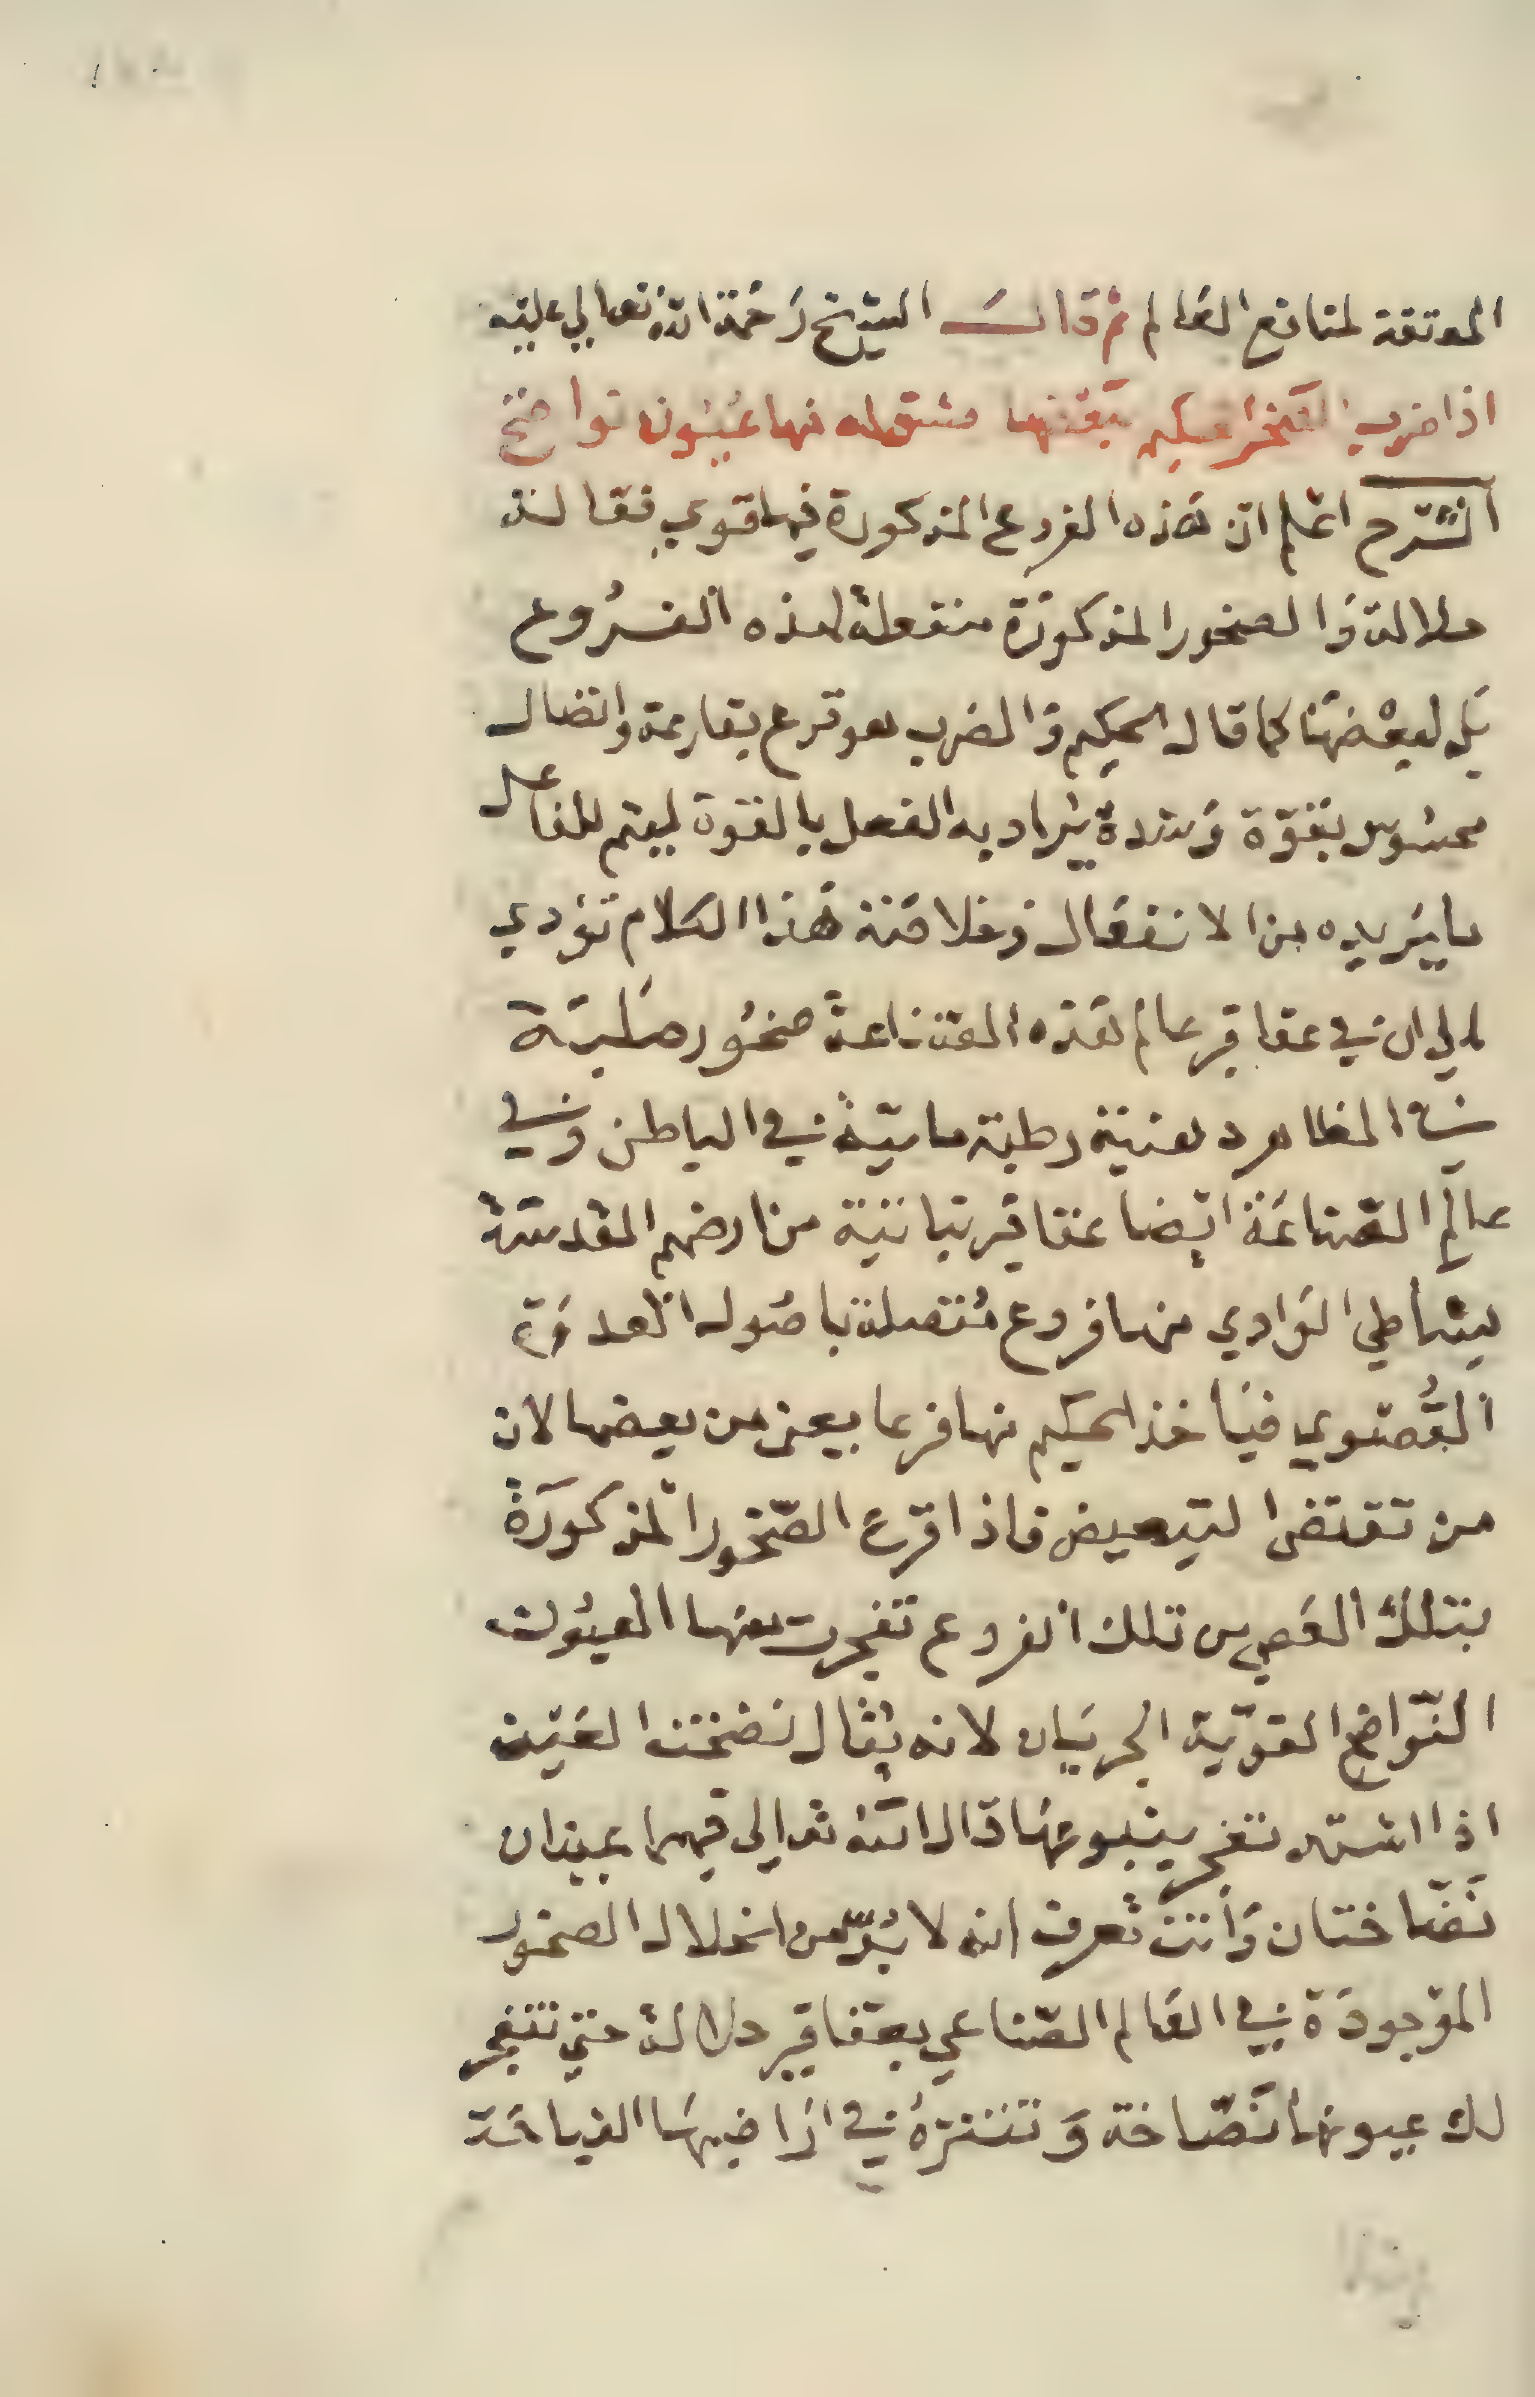 المونقة لمنافع العالم ثم قال الشيخ رَحمَة الله تعالي عليه
اذا ضرب الصخر الحكيم ببعضها منها عُيُون نواضخ
الشرح اعلم ان هَذه الفروع المذكورة فيها قوي فعالة
حلالة وَالصخور المذكورَة منفعلة لهذه الفروع
بَل لبعْضهَا كما قال الحكيم وَالضرب هو قرع بمقارعة واتصال
محسُوس بقوّة وَشدة يُراد به الفعل بالقوة ليتم للفاعل
ما يُريده من الانفعال وخلاصَة هَذا الكلام تؤدي
الي ان في عقاقير عالم هَذه الصّناعة صخُور صَلبَة
في الظاهر دهنية رطبة مائيّة في الباطن وَفي
عالَم الصّناعَة ايضا عقاقير نباتية من ارضهم المقدسَة
بشاطي الوَادي منها فروع مُتصلة باصُول العدوَة
القُصوي فيَأخذ الحكيم منها فرعا يعني من بعضها لان
من تقتضي التبعيض فاذا قرع الصّخور المذكورَة
بتلك العَصي من تلك الفروع تفجرت منها العيُون
النّواضخ القويّة الجريَان لانه يقَال نضخت العَين
اذا اشتد تفجر ينبوعهَا قال الله تعالي فيهما عينان
نَضّاختان وَأنت تعرف انه لا بُدّ من انحلال الصخور
الموجودَة في العَالم الصّناعي بعقاقير حلالة حتي تنفجر
لك عيونها نَضّاخة وَتتنزهُ في ارَاضيهَا الفياحَة